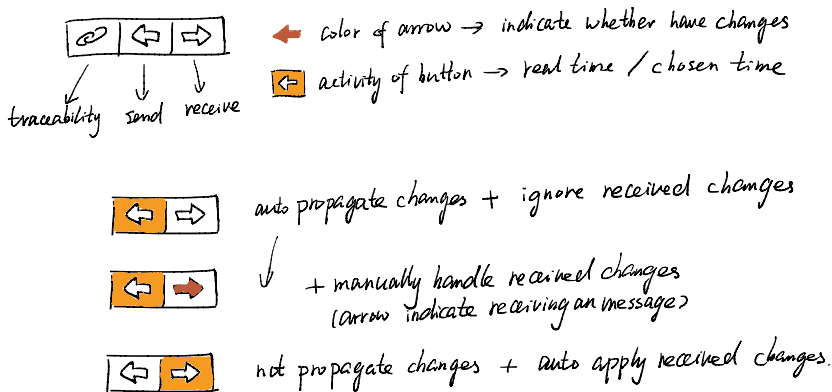 color of arrow → indicate whether have changes
activity of button → real time / chosen time
traceability send receive
auto propagate changes + ignore received changes
+ manually handle received changes
(arrow indicate receiving an message)
not propagate changes + auto apply received changes.